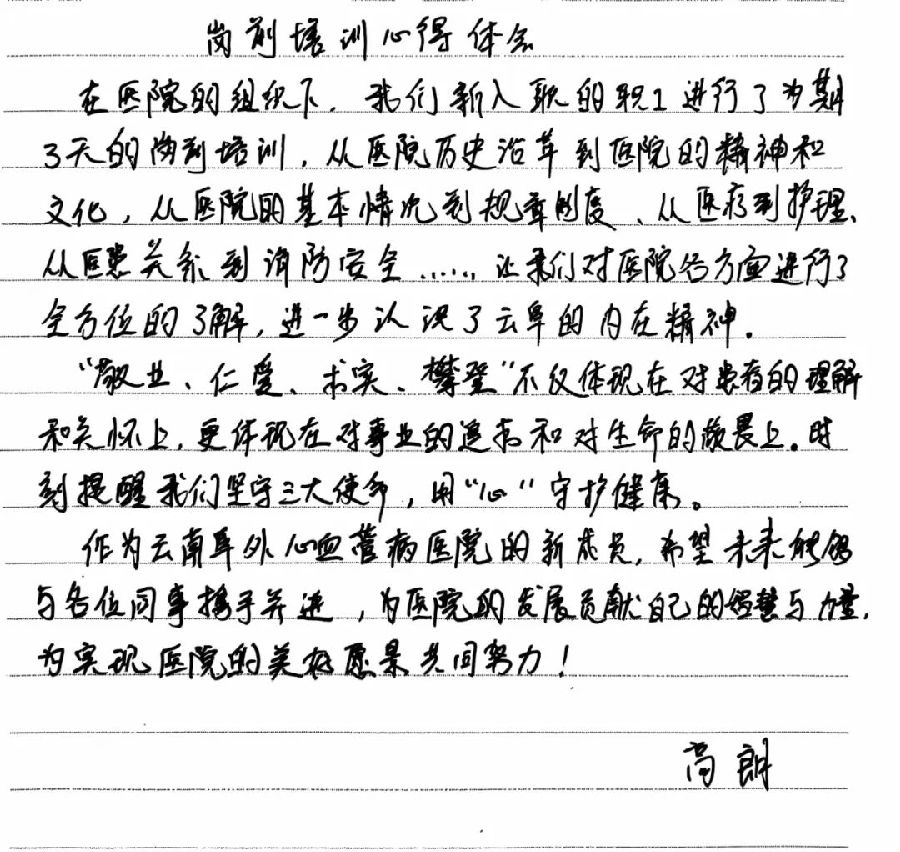 岗前培训心得体会
在医院的组织下，我们新入职的职工进行了为期
3天的岗前培训，从医院历史沿革到医院的精神和
文化，从医院的基本情况到规章制度、从医疗到护理、
从医患关系到消防安全……，让我们对医院各方面进行了
全方位的了解，进一步认识了云阜的内在精神。
“敬业、仁爱、求实、攀登”不仅体现在对患者的理解
和关怀上，更体现在对事业的追求和对生命的敬畏上。时
刻提醒我们坚守三大使命，用“心”守护健康。
作为云南阜外心血管病医院的新成员，希望未来能够
与各位同事携手并进，为医院的发展贡献自己的智慧与力量，
为实现医院的美好愿景共同努力！
高朗